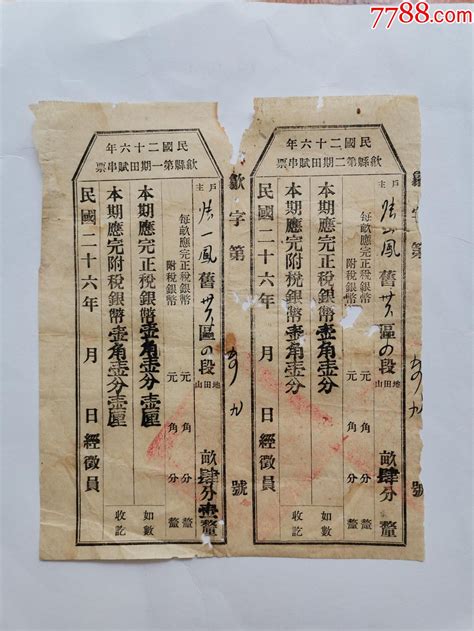 7788.com
民國二十六年
歙縣第二期田賦串票
字第 號
戶主 鳳舊 區の段 地田山 畝肆分 釐
每畝應完正稅銀幣 元 角 分 釐
附稅銀幣 元 角 分 釐
本期應完正稅銀幣壹角壹分 如數
本期應完附稅銀幣壹角壹分 收訖
民國二十六年 月 日經徵員
歙字第 號
民國二十六年
歙縣第一期田賦串票
戶主 一鳳舊 區の段 地田山 畝肆分壹釐
每畝應完正稅銀幣 元 角 分 釐
附稅銀幣 元 角 分 釐
本期應完正稅銀幣壹角壹分壹厘 如數
本期應完附稅銀幣壹角壹分壹厘 收訖
民國二十六年 月 日經徵員